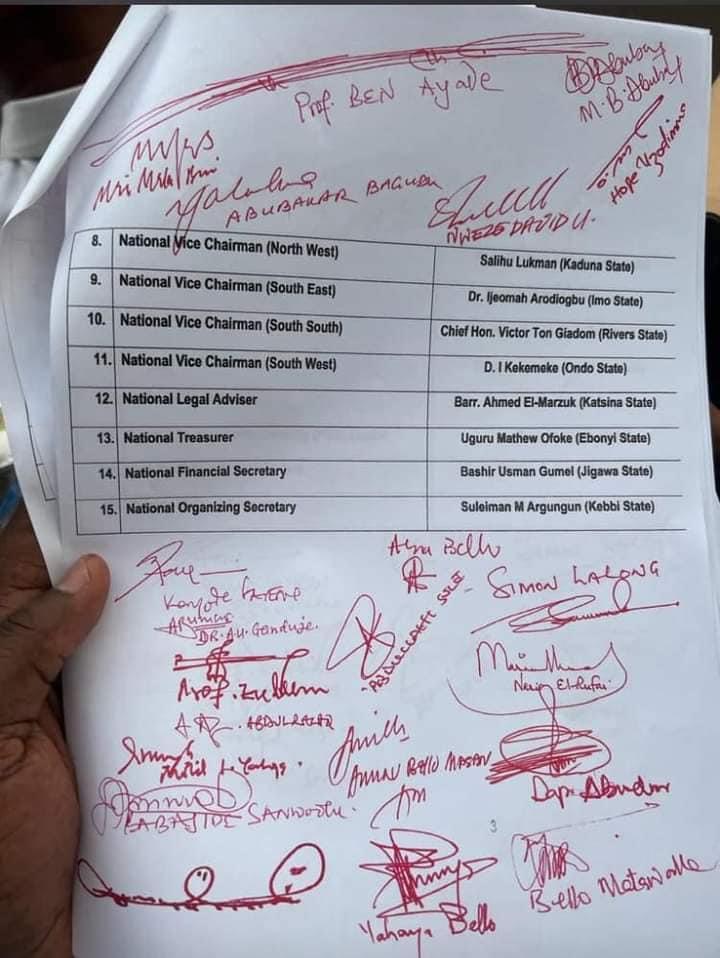 Prof. BEN Ayade
M.B. Abubakar
Hope Uzodimma
ABUBAKAR BAGUDU
NWEZE DAVID U.
8. National Vice Chairman (North West) Salihu Lukman (Kaduna State)
9. National Vice Chairman (South East) Dr. Ijeomah Arodiogbu (Imo State)
10. National Vice Chairman (South South) Chief Hon. Victor Ton Giadom (Rivers State)
11. National Vice Chairman (South West) D. I Kekemeke (Ondo State)
12. National Legal Adviser Barr. Ahmed El-Marzuk (Katsina State)
13. National Treasurer Uguru Mathew Ofoke (Ebonyi State)
14. National Financial Secretary Bashir Usman Gumel (Jigawa State)
15. National Organizing Secretary Suleiman M Argungun (Kebbi State)
Bello
SIMON LALONG
Kayode
DR. A.U. Ganduje.
Nasir El-Rufai
Prof. Zulum
ABDULRAZAQ
AMINU BELLO MASARI
Dapo Abiodun
BABAJIDE SANWOOLU.
3
Yahaya Bello
Bello Matawalle